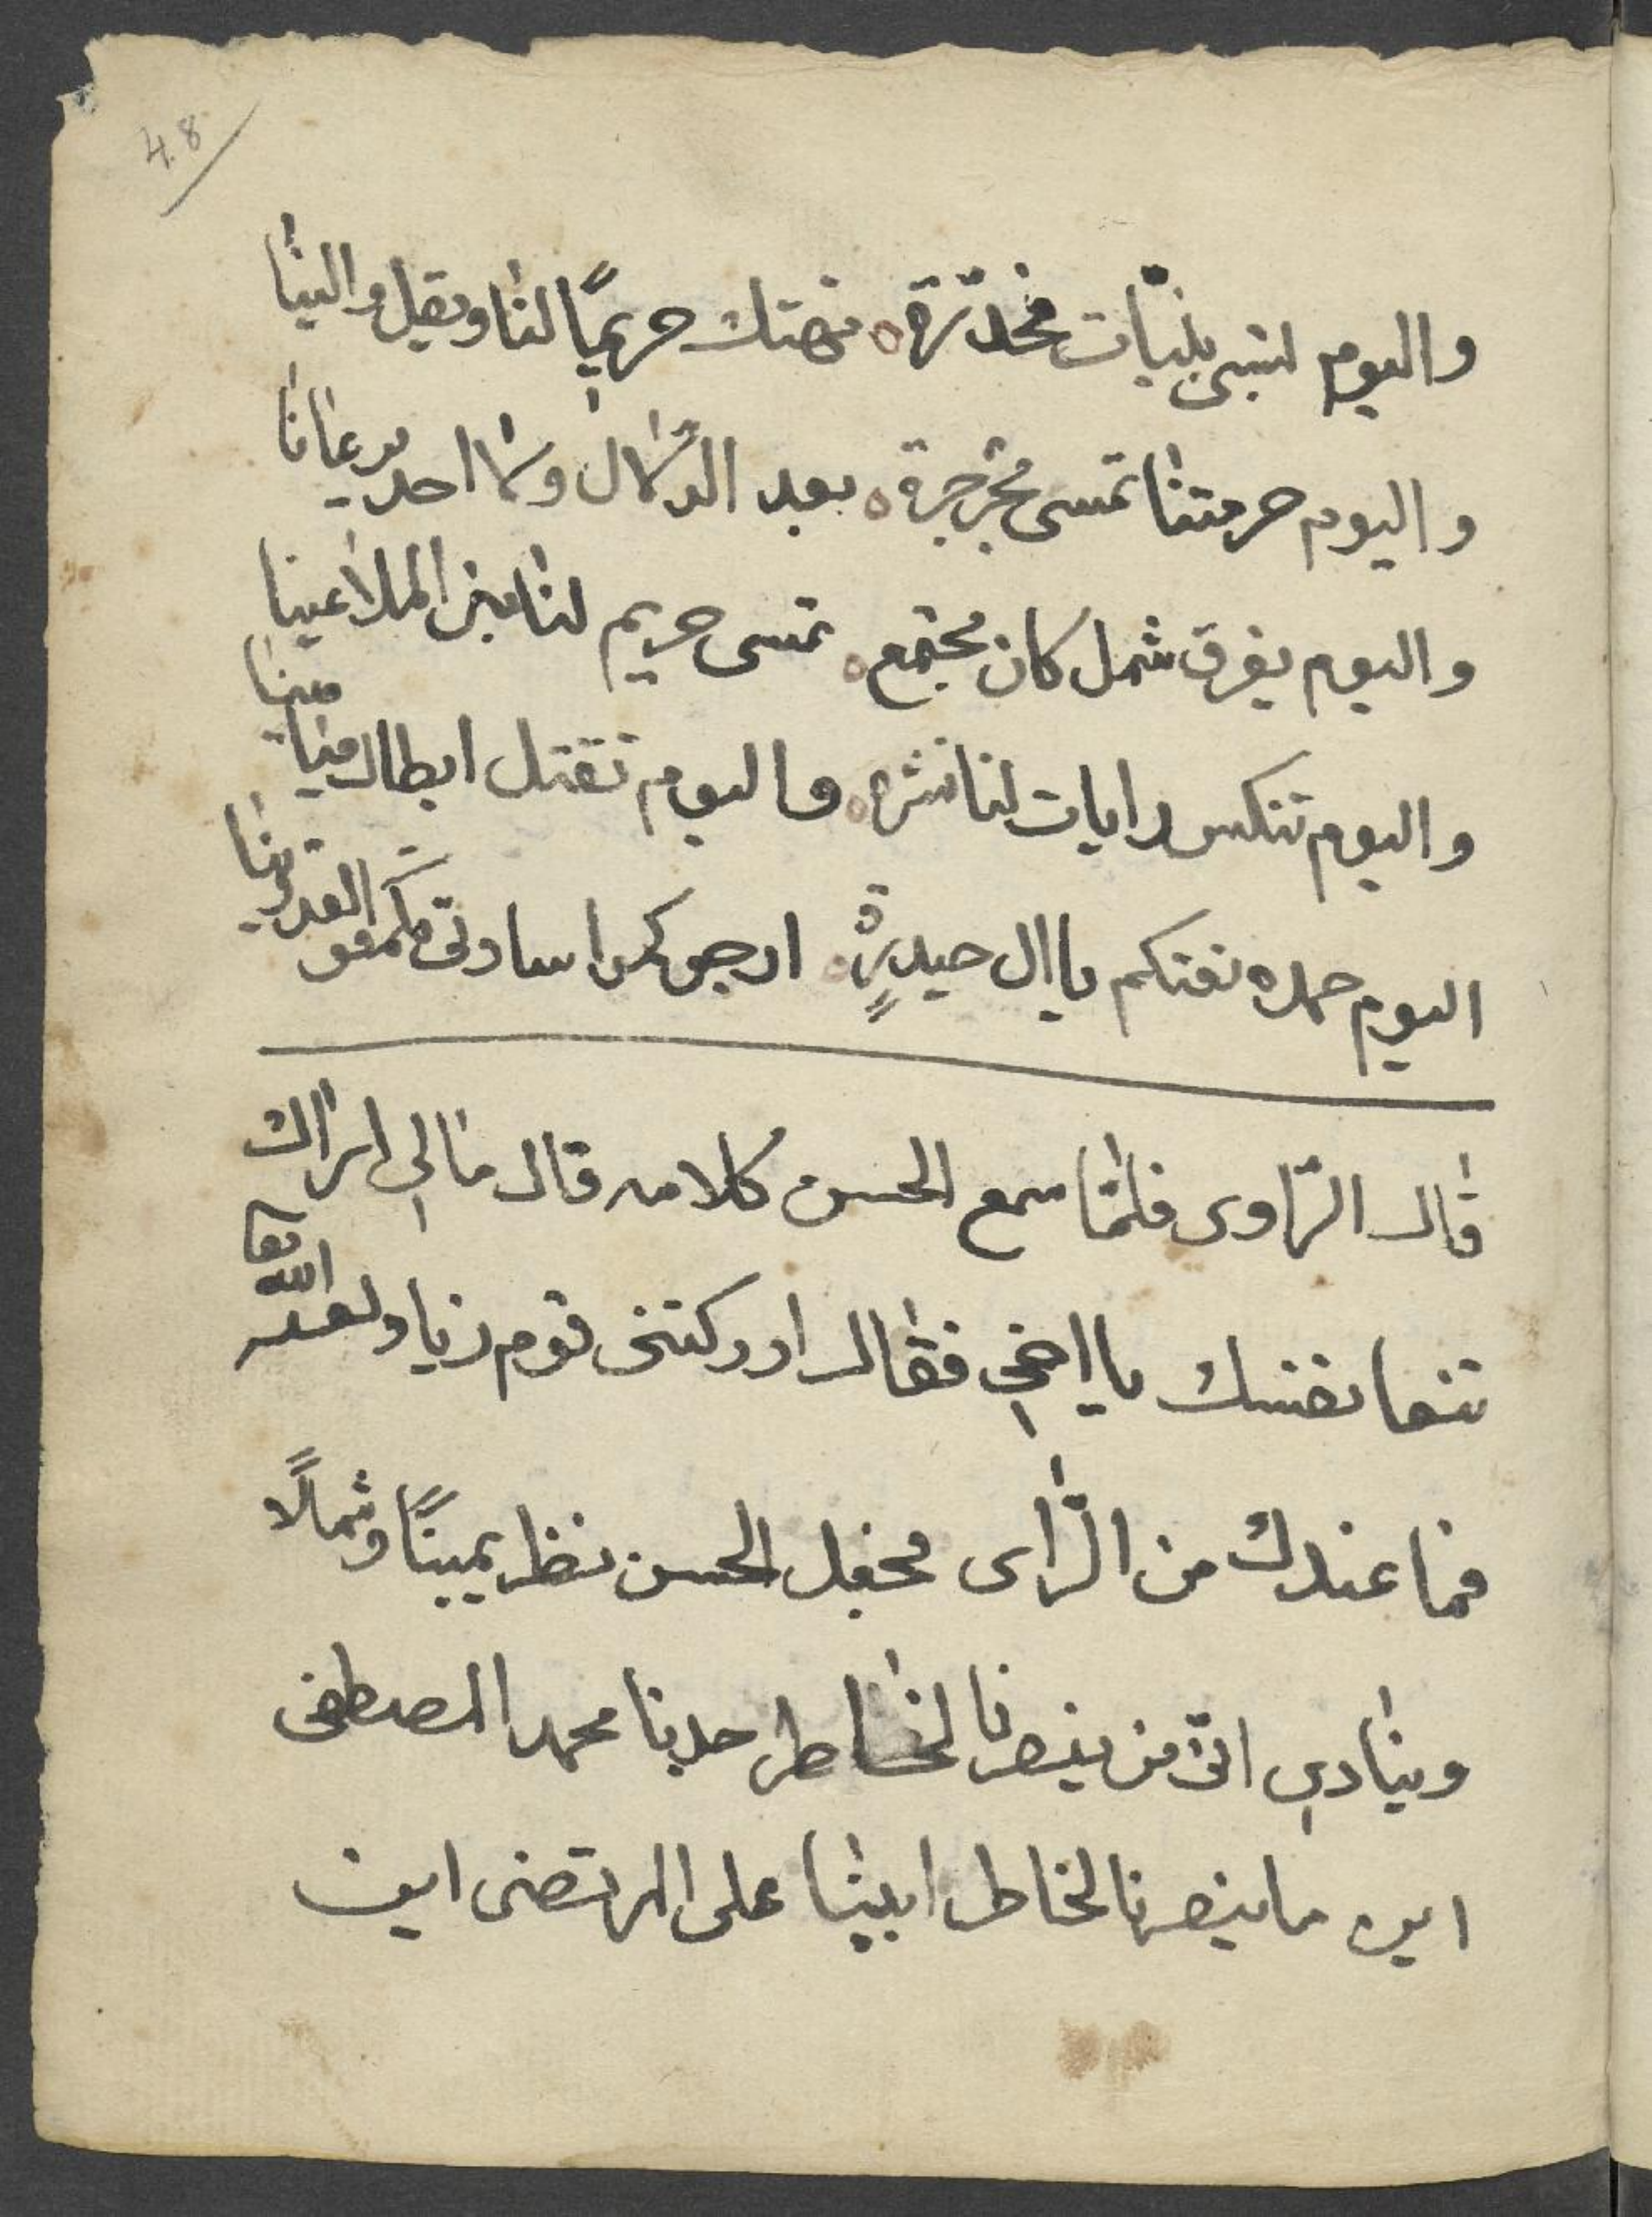 48
واليوم لتسبى بنيات مخدرة ه تهتك حريمًا لنا ويقل والينا
واليوم حرمتنا تمسى مجرجرة ه بعد الدلال ولا احد يرعانا
واليوم يفرق شمل كان مجتمع ه تمسى حريم لنا بين الملاعينا
واليوم تنكس رايات لنا نشره ه واليوم تقتل ابطال ميامينا
اليوم حمده نعتكم يا ال حيدرةٍ ه ارجوكموا سادتى
قال الرّاوى فلمّا سمع الحسين كلامه قال مالي اراك
تنعا نفسك يا اخي فقال ادركتنى قوم زياد لعنه الله تعا
فما عندك من الرّاى فجعل الحسين ينظر يمينًا وشمالًا
وينادي اين من ينصرنا لخاطر جدنا محمد المصطفى
اين ما ينصرنا لخاطر ابينا على المرتضى اين